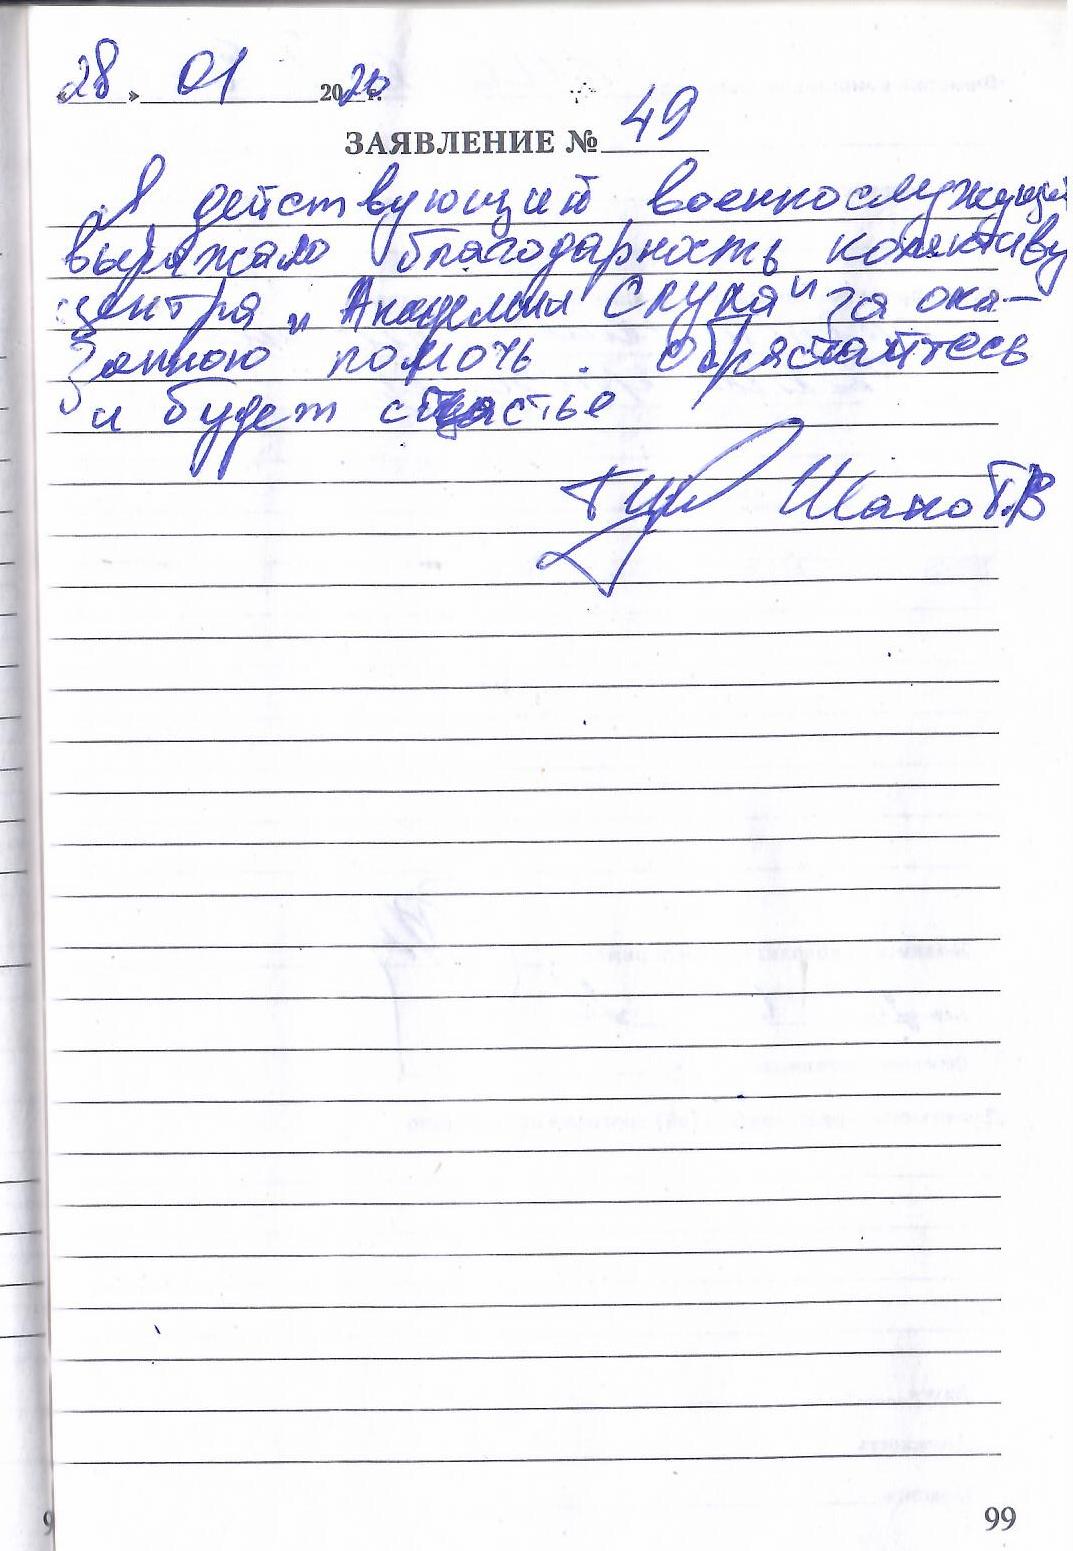 «28» 01 2020г.
ЗАЯВЛЕНИЕ № 49
Я действующий военнослужущий
выражаю благодарность колективу
центра "Академии Слуха" за ока-
занною помочь. Обрястайтесь
и будет счастье
Шано Г.В
99